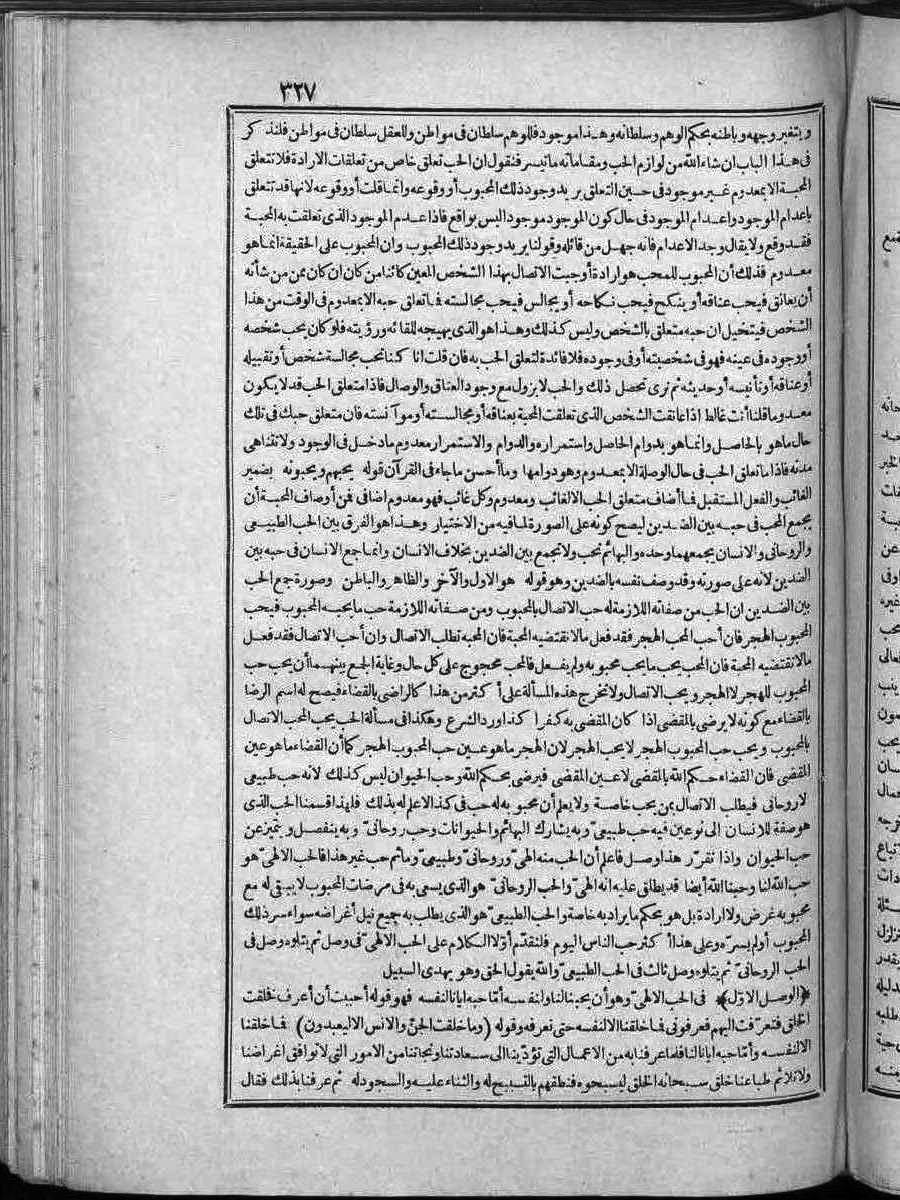 ٣٢٧
ويتغير وجهه وباطنه بحكم الوهم وسلطانه وهذا موجود فللوهم سلطان فى مواطن وللعقل سلطان فى مواطن فلنذكر
فى هذا الباب ان شاء الله من لوازم الحب ومقاماته ما تيسر فنقول ان الحب تعلق خاص من تعلقات الارادة فلا تتعلق
المحبة الا بمعدوم غير موجود فى حين التعلق يريد وجود ذلك المحبوب أو وقوعه وانما قلت أو وقوعه لانها قد تتعلق
باعدام الموجود واعدام الموجود فى حال كون الموجود موجودا ليس بواقع فاذا عدم الموجود الذى تعلقت به المحبة
فقد وقع ولا يقال وجد الاعدام فانه جهل من قائله وقولنا يريد وجود ذلك المحبوب وان المحبوب على الحقيقة انما هو
معدوم فذلك أن المحبوب للمحب هو ارادة أوجبت الاتصال بهذا الشخص المعين كائنا من كان ان كان ممن من شأنه
أن يعانق فيحب عناقه أو ينكح فيحب نكاحه أو يجالس فيحب مجالسته فما تعلق حبه الا بمعدوم فى الوقت من هذا
الشخص فيتخيل ان حبه متعلق بالشخص وليس كذلك وهذا هو الذى يهيجه للقائه ورؤيته فلو كان يحب شخصه
أو وجوده فى عينه فهو فى شخصيته أو فى وجوده فلا فائدة لتعلق الحب به فان قلت انا كنا نحب مجالسة شخص أو تقبيله
أو عناقه أو تأنيسه أو حديثه ثم نرى تحصل ذلك والحب لا يزول مع وجود العناق والوصال فاذا متعلق الحب قد لا يكون
معدوما قلنا أنت غالط اذا عانقت الشخص الذى تعلقت المحبة بعناقه أو مجالسته أو موآنسته فان متعلق حبك فى تلك
حال ما هو بالحاصل وانما هو بدوام الحاصل واستمراره والدوام والاستمرار معدوم ما دخل فى الوجود ولا تتناهى
مدته فاذا ما تعلق الحب فى حال الوصلة الا بمعدوم وهو دوامها وما أحسن ما جاء فى القرآن قوله يحبهم ويحبونه بضمير
الغائب والفعل المستقبل فما أضاف متعلق الحب الا لغائب ومعدوم وكل غائب فهو معدوم اضافى فمن أوصاف المحبة أن
يجمع المحب فى حبه بين الضدين ليصح كونه على الصورة لما فيه من الاختيار وهذا هو الفرق بين الحب الطبيعى
والروحانى والانسان يجمعهما وحده والبهائم تحب ولا تجمع بين الضدين بخلاف الانسان وانما جمع الانسان فى حبه بين
الضدين لانه على صورته وقد وصف نفسه بالضدين وهو قوله هو الاول والآخر والظاهر والباطن وصورة جمع الحب
بين الضدين ان الحب من صفاته اللازمة له حب الاتصال بالمحبوب ومن صفاته اللازمة حب ما يحبه المحبوب فيحب
المحبوب الهجر فان أحب المحب الهجر فقد فعل ما لا تقتضيه المحبة فان المحبة تطلب الاتصال وان أحب الاتصال فقد فعل
ما لا تقتضيه المحبة فان المحب يحب ما يحب محبوبه ولم يفعل فالمحب محجوج على كل حال وغاية الجمع بينهما أن يحب حب
المحبوب للهجر لا الهجر ويحب الاتصال ولا تخرج هذه المسألة على أكثر من هذا كالراضى بالقضاء فيصح له اسم الرضا
بالقضاء مع كونه لا يرضى بالمقضى اذا كان المقضى به كفرا كذا ورد الشرع وهكذا فى مسألة الحب يحب المحب الاتصال
بالمحبوب ويحب حب المحبوب الهجر لا يحب الهجر لان الهجر ما هو عين حب المحبوب الهجر كما أن القضاء ما هو عين
المقضى فان القضاء حكم الله بالمقضى لا عين المقضى فيرضى بحكم الله وحب الحيوان ليس كذلك لانه حب طبيعى
لا روحانى فيطلب الاتصال بمن يحب خاصة ولا يعلم أن محبوبه له حب فى كذا لا علم له بذلك فلهذا قسمنا الحب الذى
هو صفة للانسان الى نوعين فيه حب طبيعىّ وبه يشارك البهائم والحيوانات وحب روحانىّ وبه ينفصل ويتميز عن
حب الحيوان واذا تقرّر هذا وصل فاعلم أن الحب منه الهىّ وروحانىّ وطبيعىّ وما ثم حب غير هذا فالحب الالهىّ هو
حب الله لنا وحبنا الله أيضا قد يطلق عليه انه الهىّ والحب الروحانىّ هو الذى يسعى به فى مرضات المحبوب لا يبقى له مع
محبوبه غرض ولا ارادة بل هو بحكم ما يراد به خاصة والحب الطبيعىّ هو الذى يطلب به جميع نيل أغراضه سواء سر ذلك
المحبوب أو لم يسره وعلى هذا أكثر حب الناس اليوم فلنقدّم أوّلا الكلام على الحب الالهىّ فى وصل ثم يتلوه وصل فى
الحب الروحانىّ ثم يتلوه وصل ثالث فى الحب الطبيعىّ والله يقول الحق وهو يهدى السبيل
﴿الوصل الاوّل﴾ فى الحب الالهىّ وهو أن يحبنا لنا ولنفسه أمّا حبه ايانا لنفسه فهو قوله أحببت أن أعرف فخلقت
الخلق فتعرّفت اليهم فعرفونى فما خلقنا الا لنفسه حتى نعرفه وقوله (وما خلقت الجنّ والانس الا ليعبدون) فما خلقنا
الا لنفسه وأمّا حبه ايانا لنا فلما عرفنا به من الاعمال التى تؤدّينا الى سعادتنا ونجاتنا من الامور التى لا توافق اغراضنا
ولا تلائم طباعنا خلق سبحانه الخلق ليسبحوه فنطقهم بالتسبيح له والثناء عليه والسجود له ثم عرفنا بذلك فقال